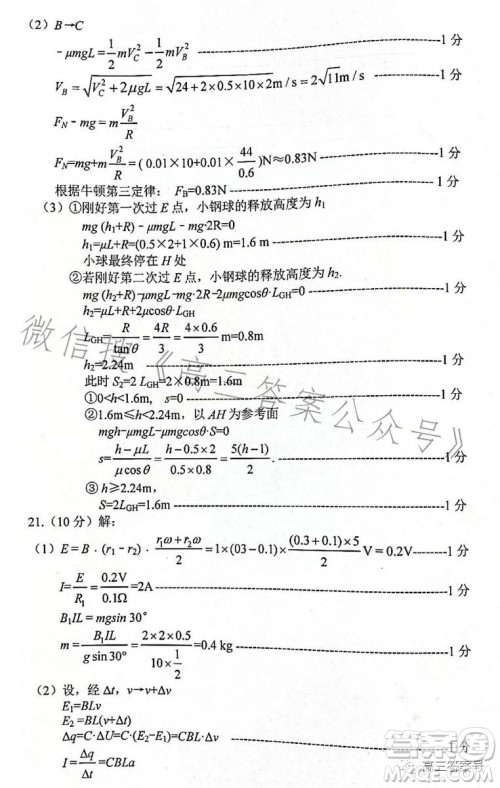 （2）B→C
－μmgL＝1/2 mV_C²－1/2 mV_B² 1 分
V_B＝√(V_C²＋2μgL)＝√(24＋2×0.5×10×2) m/s＝2√11 m/s 1 分
F_N－mg＝m V_B²/R
F_N=mg+m V_B²/R＝（0.01×10+0.01×44/0.6）N≈0.83N 1 分
根据牛顿第三定律：F_B=0.83N
（3）①刚好第一次过 E 点，小钢球的释放高度为 h₁
mg (h₁+R)－μmgL－mg·2R=0
h₁=μL+R=(0.5×2+1×0.6) m=1.6m 1 分
小球最终停在 H 处
②若刚好第二次过 E 点，小钢球的释放高度为 h₂.
mg (h₂+R)－μmgL－mg·2R－2μmgcosθ·L_GH=0 1 分
h₂=μL+R+2μcosθ·L_GH
L_GH＝R/tanθ＝4R/3＝4×0.6/3 m=0.8m
h₂=2.24m
此时 S₂=2 L_GH=2×0.8m=1.6m
①0<h<1.6m，s=0 1 分
②1.6m≤h<2.24m，以 AH 为参考面
mgh－μmgL－μmgcosθ·S=0
s＝(h－μL)/(μcosθ)＝(h－0.5×2)/(0.5×0.8)＝5(h－1)/2 1 分
③ h≥2.24m，
S=2L_GH=1.6m 1 分
21.（10 分）解：
（1）E＝B·(r₁－r₂)·(r₁ω＋r₂ω)/2＝1×(03－0.1)×(0.3＋0.1)×5/2 V＝0.2V 1 分
I＝E/R₁＝0.2V/0.1Ω=2A 1 分
B₁IL＝mgsin 30°
m＝B₁IL/(g sin30°)＝(2×2×0.5)/(10×1/2)=0.4 kg 1 分
（2）设，经 Δt，v→v+Δv
E₁=BLv
E₂ =BL(v+Δv)
Δq=C·ΔU=C·(E₂－E₁)=CBL·Δv 1 分
I＝Δq/Δt＝CBLa
微信搜《高三答案公众号》
高三答案号